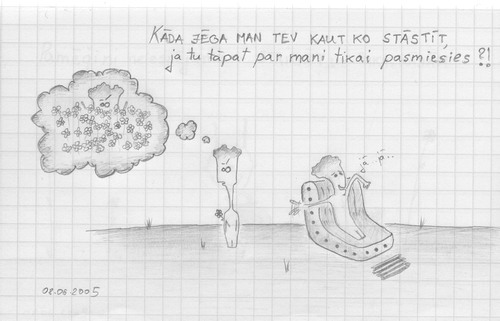 KĀDA JĒGA MAN TEV KAUT KO STĀSTĪT,
ja tu tāpat par mani tikai pasmiesies?!
08.06.2005